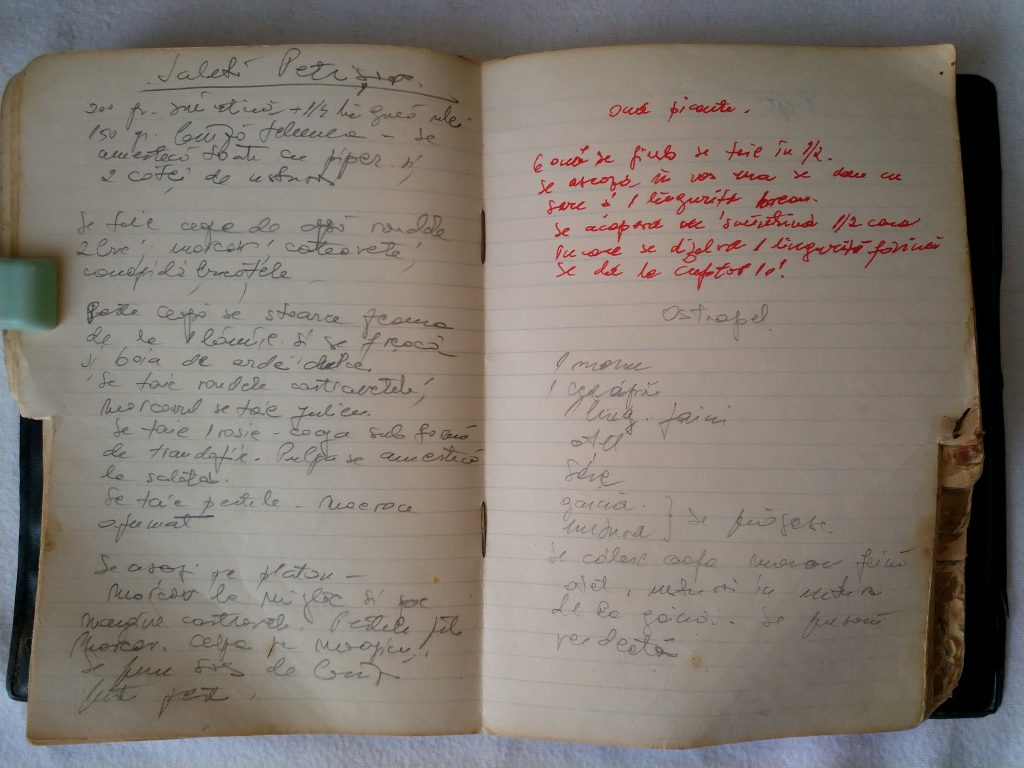 Salată
200 gr. smîntînă + 1/4 lingură ulei
150 gr. brînză telemea - se
amestecă toate cu piper și
2 căței de usturoi
Se taie ceapa de apă rondele
2 morcovi, castravete,
conopidă bucățele
Peste ceapă se stoarce zeama
de la 1 lămîie și se freacă
și boia de ardei dulce.
Se taie rondele castravetele,
morcovul se taie julien.
Se taie 1 roșie - coaja sub formă
de trandafir. Pulpa se amestecă
la salată.
Se taie peștele - macrou
afumat
Se așază pe platou -
morcov la mijloc și pe
margine castraveți. Peștele
morcov. Ceapa pe margine.
Se pune sos de
peste pește.
Ouă picante.
6 ouă se fierb se taie în 1/2.
Se așază în vas uns se dau cu
sare și 1 linguriță
Se acoperă cu smîntînă 1/2 cana
în care se dizolvă 1 linguriță făină
Se dă la cuptor 10!
Ostropel
1 morcov
1 ceapă
ling. făină
oțet
sare
găină
usturoi } se prăjesc
Se călesc ceapa morcov făină
oțet, usturoi în untura
de la găină. Se presară
verdeață